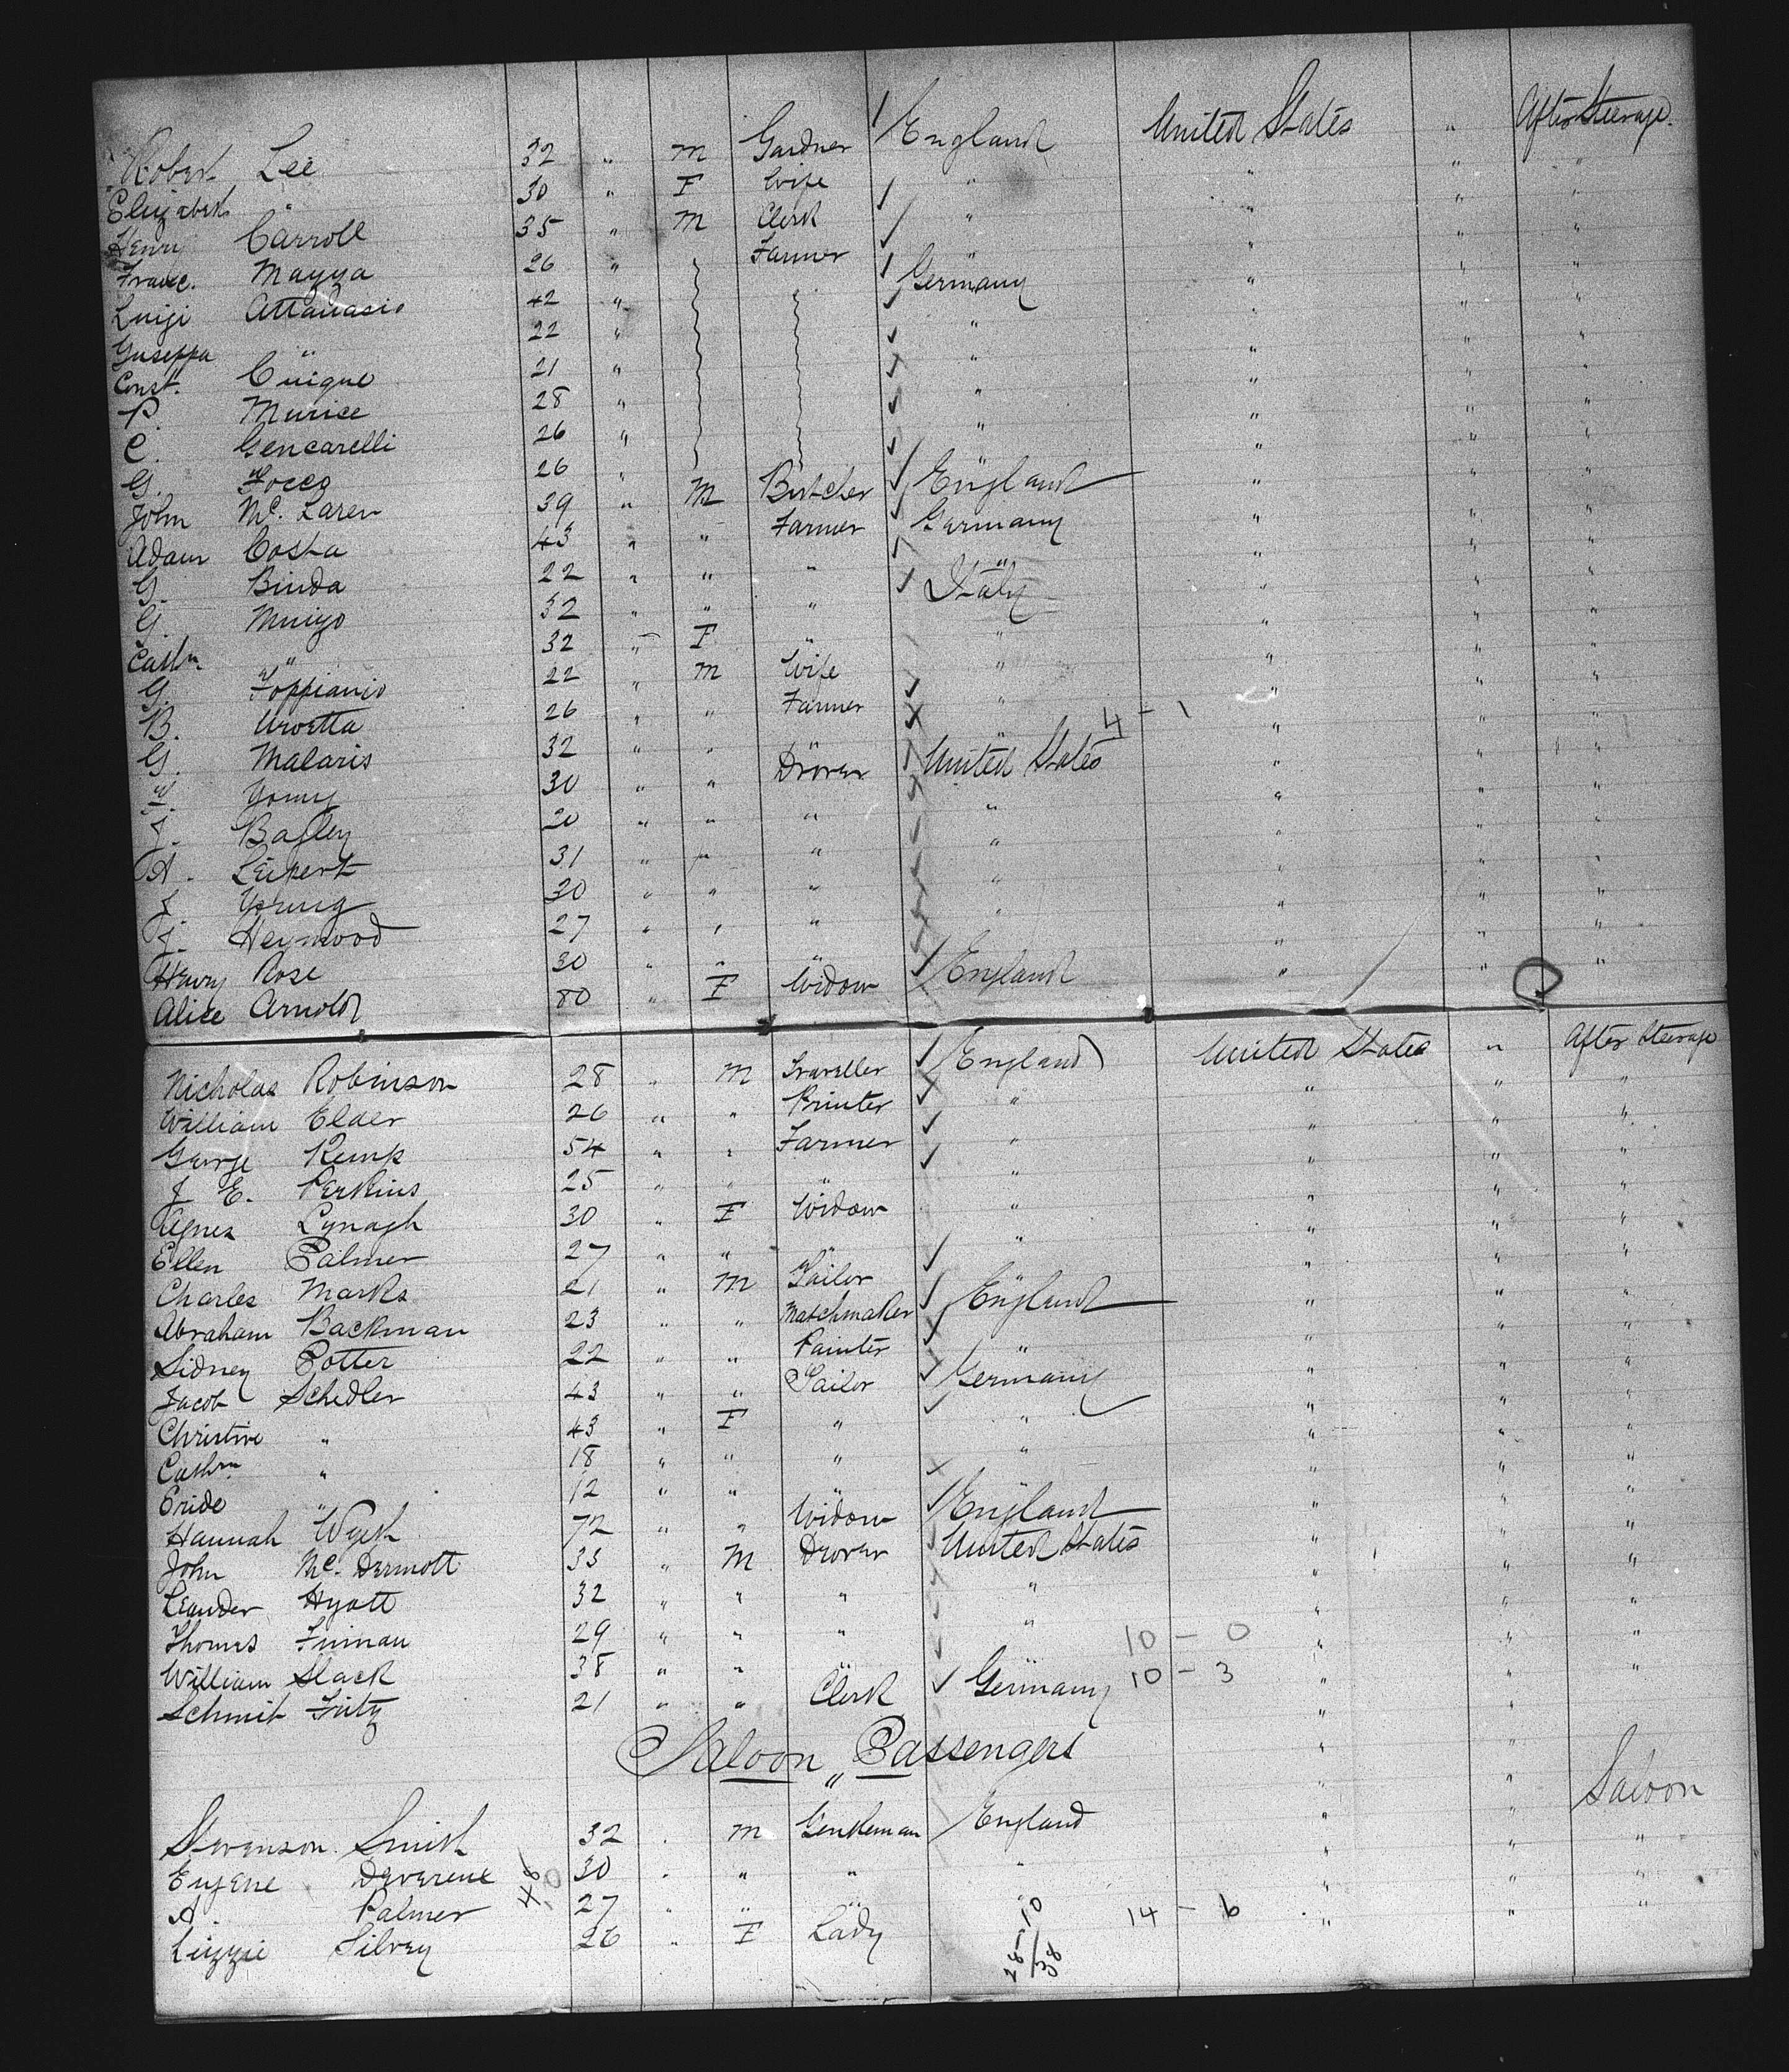 Robert Lee 32 " M Gardner England United States " After Steerage
Elizabeth " 30 " F Wife " " " "
Henry Carroll 35 " M Clerk " " " "
Franc. Mayya 26 " Farmer " " "
Luigi Attanasio 42 " Germany " " "
Guseppa " 22 " " " " "
Const. Cuique 21 " " " " "
P. Murice 28 " " " " "
C. Gencarelli 26 " " " " "
G. Focco 26 " " " "
John Mc. Laren 39 " M Butcher England " " "
Adam Costa 43 " " Farmer Germany " " "
G. Binda 22 " " " " " " "
G. Muigo 32 " " " Italy " " "
Cathn. " 32 " F Wife " " " "
G. Foppianio 22 " M Farmer " " " "
B. Uroetta 26 " " " " " " "
G. Malaris 32 " " " " 4 - 1 " " "
F. Young 30 " " Drover United States " " "
J. Bagley 20 " " " " " " "
A. Leipert 31 " " " " " " "
J. Young 30 " " " " " " "
J. Heymood 27 " " " " " " "
Henry Rose 30 " " " " " "
Alice Arnold 80 " F Widow England " " "
Nicholas Robinson 28 " M Traveller England United States " After Steerage
William Elder 26 " " Printer " " " "
George Kemp 54 " " Farmer " " " "
J E. Perkins 25 " " " " " " "
Agnes Lynagh 30 " F Widow " " " "
Ellen Palmer 27 " " " " " " "
Charles Marks 21 " M Tailor " " " "
Abraham Backman 23 " " Matchmaker England " " "
Sidney Potter 22 " " Painter " " " "
Jacob Schedler 43 " " Tailor Germany " " "
Christine " 43 " F " " " " "
Cathn " 18 " " " " " " "
Eride " 12 " " " " " "
Hannah Wych 72 " " Widow England " " "
John Mc. Dermott 33 " M Drover United States " " "
Leander Hyatt 32 " " " " " " "
Thomas Finnan 29 " " " " 10 - 0 " " "
William Slack 38 " " " 10 - 3 " " "
Schmit Fritz 21 " " Clerk Germany " "
Saloon " Passengers
Stevenson Smith 32 " M Gentleman England " " Saloon
Eugene Devereue 48 30 " " " " " " "
A. Palmer 27 " " " " " " "
Lizzie Silvey 26 " F Lady 28-10 / 38 14 - 6 " " "